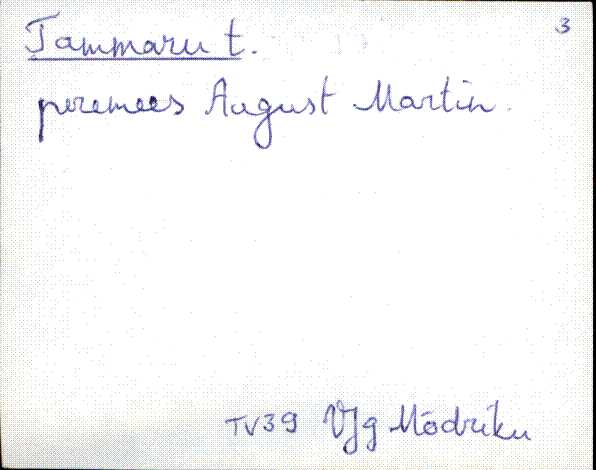 Tammaru t. 3
peremees August Martin.
TV39 VJg Mõdriku